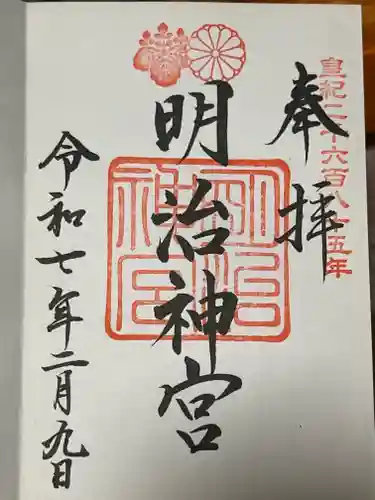 奉拝
皇紀二千六百八十五年
明治神宮
明治神宮
令和七年二月九日